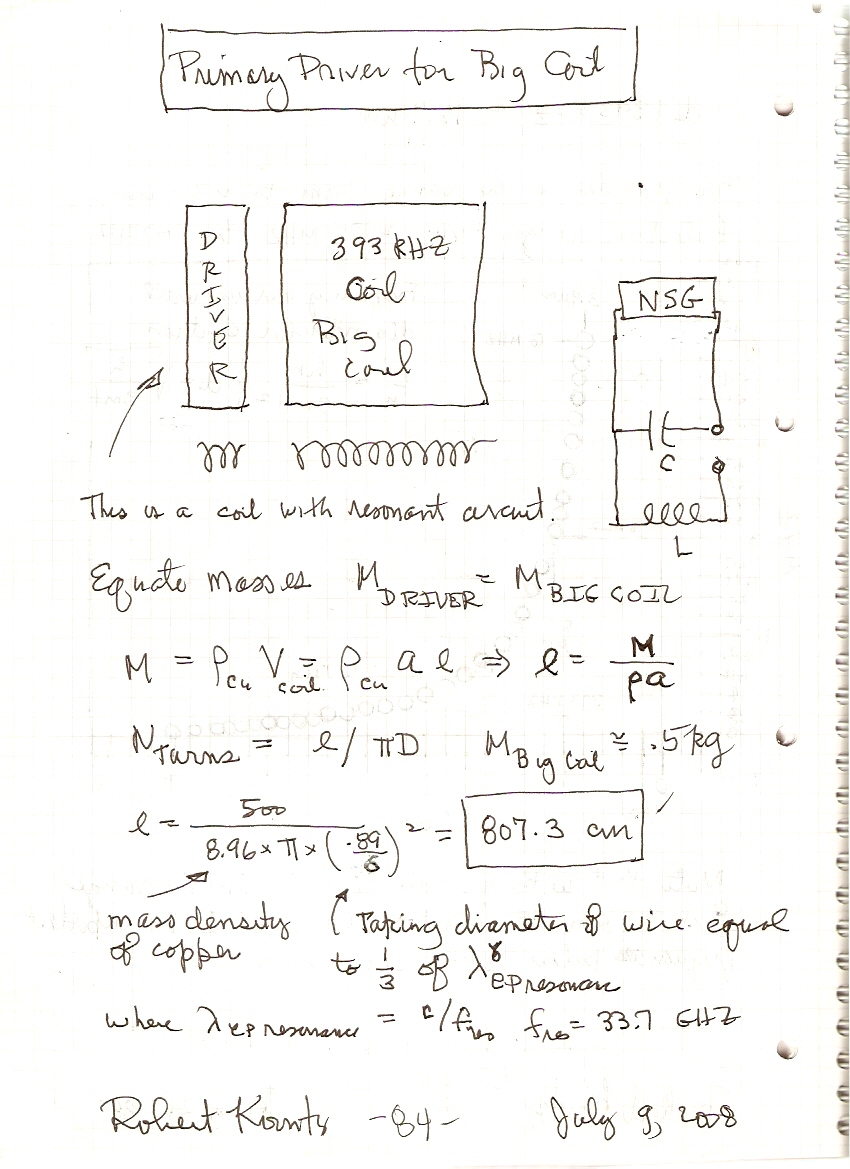 Primary Driver for Big Coil
DRIVER
393 KHZ
Coil
Big
Coil
NSG
C
L
This is a coil with resonant circuit.
Equate masses M_DRIVER = M_BIG COIL
M = ρ_cu V_coil = ρ_cu a l ⇒ l = M/ρa
N_Turns = l / πD M_Big Coil ≅ .5 kg
l = 500 / (8.96 × π × (.89/6)²) = 807.3 cm
mass density
of copper
Taking diameter of wire equal
to 1/3 of λ^γ_ep resonance
where λ_ep resonance = c/f_res f_res = 33.7 GHZ
Robert Koontz -84- July 9, 2008